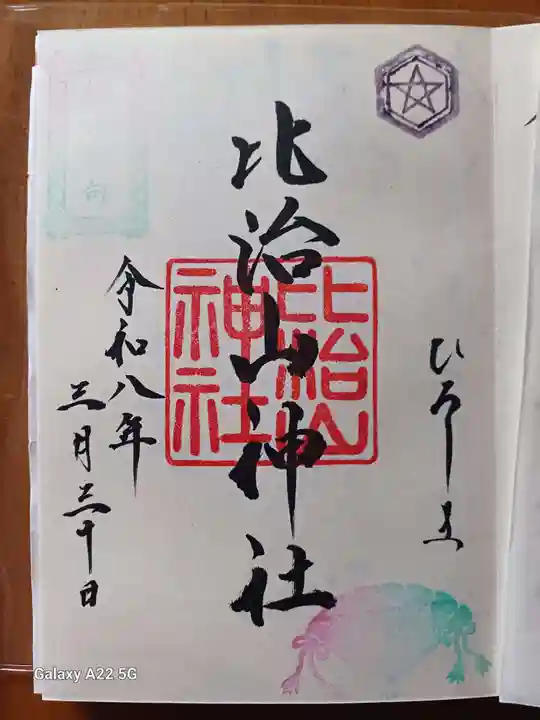 ひろしま
比治山神社
比治山
神社
令和八年
三月三十日
向
Galaxy A22 5G